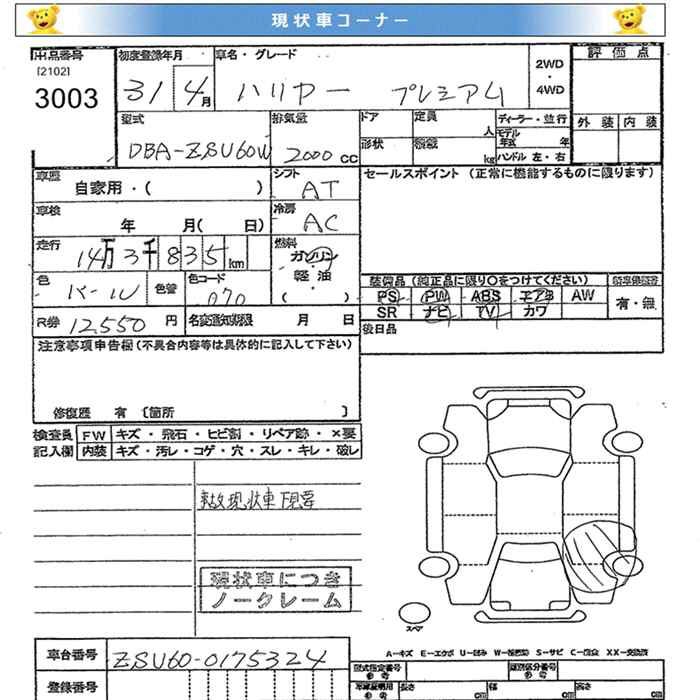 現状車コーナー
出品番号 初度登録年月 車名・グレード 2WD・4WD 評価点
[2102]
3003 31 4月 ハリヤー プレミアム
型式 排気量 ドア 定員 人 ディーラー・並行 外装 内装
DBA-ZSU60W 2000 CC 形状 積載 kg モデル年式 年 ハンドル 左・右
車歴 自家用・( ) シフト AT セールスポイント (正常に機能するものに限ります)
車検 年 月( 日) 冷房 AC
走行 14万3千835km 燃料 ガソリン・軽油・( )
装備品 (純正品に限り○をつけてください)
色 パール 色替 色コード 070 PS PW ABS エアB AW 有・無
R券 12,550 円 名変通知期限 月 日 SR ナビ TV カワ
後日品
注意事項申告欄(不具合内容等は具体的に記入して下さい)
修復歴 有 〔箇所 〕
検査員 FW キズ・飛石・ヒビ割・リペア跡・×要
記入欄 内装 キズ・汚レ・コゲ・穴・スレ・キレ・破レ
事故現状車下見要
現状車につき
ノークレーム
スペア
A-キズ E-エクボ U-凹み
車台番号 ZSU60-0175324 型式指定番号 類別区分番号
登録番号 長さ cm 幅 cm 高さ cm